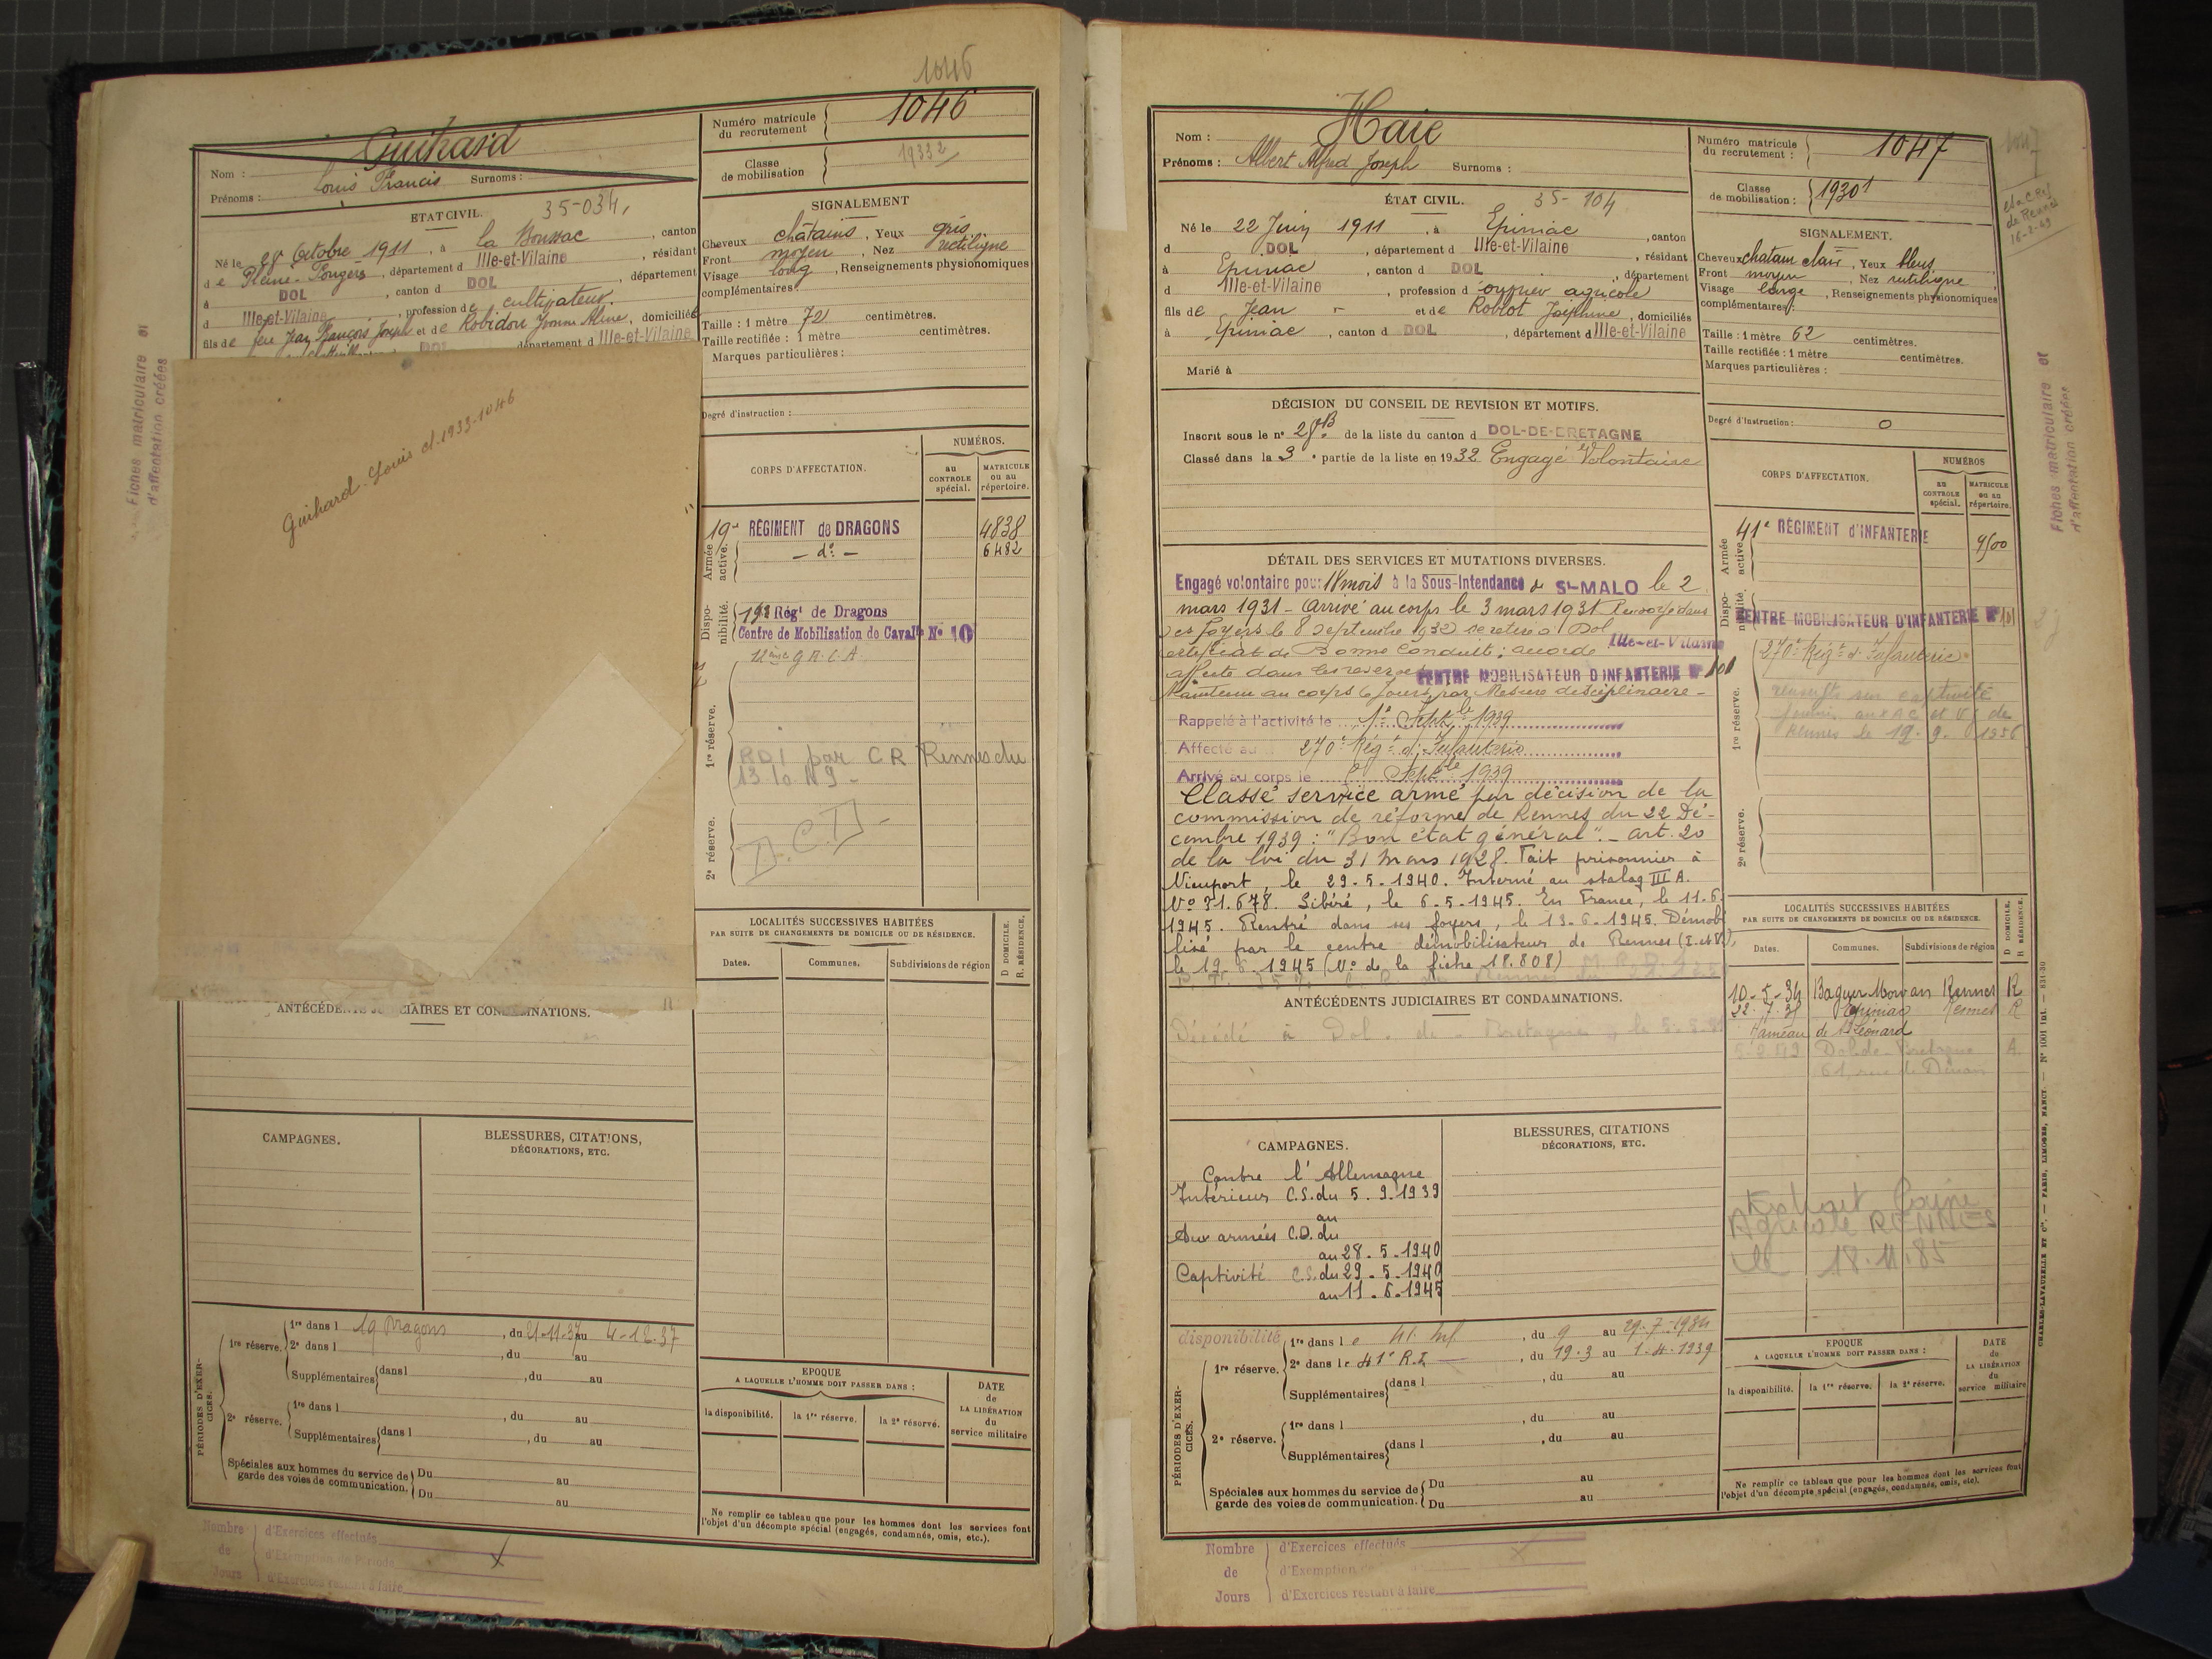 1046
Guihard
Nom :
Prénoms : Louis Francis Surnoms :
Numéro matricule du recrutement 1046
Classe de mobilisation 1933 2
ETAT CIVIL. 35-034,
Né le 28 Octobre 1911, à La Boussac, canton
de Pleine-Fougères, département d Ille-et-Vilaine, résidant
à DOL, canton d DOL, département
d Ille-et-Vilaine, profession de cultivateur.
fils de feu Jean François Joseph et de Robidou Yvonne Aline, domiciliés
DOL département d Ille-et-Vilaine
SIGNALEMENT
Cheveux chatains, Yeux gris
Front moyen, Nez rectiligne
Visage long, Renseignements physionomiques
complémentaires :
Taille : 1 mètre 72 centimètres.
Taille rectifiée : 1 mètre centimètres.
Marques particulières :
Degré d'instruction :
Fiches matriculaire et
d'affectation créées
Guihard Louis cl. 1933-1046
CORPS D'AFFECTATION.
NUMÉROS.
au CONTROLE spécial.
MATRICULE ou au répertoire.
Armée active.
19e RÉGIMENT de DRAGONS 4838
- do - 6482
Disponibilité.
19e Régt de Dragons
Centre de Mobilisation de Cavalie No 10
1re réserve.
RDI par CR Rennes du
2e réserve.
LOCALITÉS SUCCESSIVES HABITÉES
PAR SUITE DE CHANGEMENTS DE DOMICILE OU DE RÉSIDENCE.
D DOMICILE.
R. RÉSIDENCE.
Dates. Communes. Subdivisions de région
ANTÉCÉDENTS JUDICIAIRES ET CONDAMNATIONS.
CAMPAGNES.
BLESSURES, CITATIONS,
DÉCORATIONS, ETC.
PÉRIODES D'EXERCICES.
1re réserve. 1re dans l 19 Dragons, du 21-11-37 au 4-12-37
2e dans l, du au
Supplémentaires dans l, du au
2e réserve. 1re dans l, du au
Supplémentaires dans l, du au
Spéciales aux hommes du service de garde des voies de communication. Du au
Du au
EPOQUE
A LAQUELLE L'HOMME DOIT PASSER DANS :
la disponibilité. la 1re réserve. la 2e réserve.
DATE de LA LIBÉRATION du service militaire
Ne remplir ce tableau que pour les hommes dont les services font
l'objet d'un décompte spécial (engagés, condamnés, omis, etc.).
Nombre de Jours
d'Exercices effectués
d'Exemption de Période
d'Exercices restant à faire
Nom : Haie
Prénoms : Albert Alfred Joseph Surnoms :
Numéro matricule du recrutement : 1047
1047
Classe de mobilisation : 1930 1
de Rennes
ÉTAT CIVIL. 35-104
Né le 22 Juin 1911, à Epiniac, canton
d DOL, département d Ille-et-Vilaine, résidant
à Epiniac, canton d DOL, département
d Ille-et-Vilaine, profession d'ouvrier agricole
fils de Jean et de Roblot Joséphine, domiciliés
à Epiniac, canton d DOL, département d Ille-et-Vilaine
Marié à
SIGNALEMENT.
Cheveux chatain clair, Yeux bleus
Front moyen, Nez rectiligne
Visage large, Renseignements physionomiques
complémentaires :
Taille : 1 mètre 62 centimètres.
Taille rectifiée : 1 mètre centimètres.
Marques particulières :
Degré d'instruction : 0
Fiches matriculaire et
d'affectation créées
DÉCISION DU CONSEIL DE REVISION ET MOTIFS.
Inscrit sous le no 28B de la liste du canton d DOL-DE-BRETAGNE
Classé dans la 3e partie de la liste en 1932 Engagé Volontaire
CORPS D'AFFECTATION.
NUMÉROS
au CONTROLE spécial.
MATRICULE ou au répertoire.
Armée active.
41e RÉGIMENT d'INFANTERIE 9500
Disponibilité.
CENTRE MOBILISATEUR D'INFANTERIE No 101
270e Régt d'Infanterie
1re réserve.
renseigts sur captivité
fournis aux AC et VG de
Rennes le 19.9.1956
2e réserve.
DÉTAIL DES SERVICES ET MUTATIONS DIVERSES.
Engagé volontaire pour 18 mois à la Sous-Intendance de St-MALO le 2
mars 1931 - Arrivé au corps le 3 mars 1931 Renvoyé dans
ses foyers le 8 Septembre 1932 se retire à Dol Ille-et-Vilaine
Certificat de Bonne Conduite : accordé
affecté dans les réserves CENTRE MOBILISATEUR D'INFANTERIE No 101
Maintenu au corps 6 Jours par Mesure disciplinaire -
Rappelé à l'activité le 1er Septbre 1939
Affecté au 270e Régt d'Infanterie
Arrivé au corps le Septbre 1939
Classé service armé par décision de la
commission de réforme de Rennes du 22 Dé-
cembre 1939 : "Bon état général". - art. 20
de la loi du 31 Mars 1928. Fait prisonnier à
Nieuport, le 29.5.1940. Interné au stalag III A.
No 31.678. Libéré, le 6.5.1945. En France, le 11.6.
1945. Rentré dans ses foyers, le 13.6.1945. Démobi
lisé par le centre démobilisateur de Rennes (I. et V.),
le 19.6.1945 (No de la fiche 18.808)
ANTÉCÉDENTS JUDICIAIRES ET CONDAMNATIONS.
Décédé à Dol-de-Bretagne, le
LOCALITÉS SUCCESSIVES HABITÉES
PAR SUITE DE CHANGEMENTS DE DOMICILE OU DE RÉSIDENCE.
D DOMICILE.
R RÉSIDENCE.
Dates. Communes. Subdivisions de région
10-5-34 Baguer Morvan Rennes R
Epiniac Rennes R
Hameau de St Léonard
Dol-de-Bretagne A.
61, rue de Dinan
CAMPAGNES.
Contre l'Allemagne
Intérieur C.S. du 5.9.1939
au
Aux armées C.D. du
au 28.5.1940
Captivité C.S. du 29.5.1940
au 11.6.1945
BLESSURES, CITATIONS
DÉCORATIONS, ETC.
Extrait
Agricole RENNES
le 18.11.85
PÉRIODES D'EXERCICES.
disponibilité 1re dans le 41e Inf, du 9 au 29-7-1934
1re réserve. 2e dans le 41e R.I., du 19-3 au 1-4-1939
Supplémentaires dans l, du au
2e réserve. 1re dans l, du au
Supplémentaires dans l, du au
Spéciales aux hommes du service de garde des voies de communication. Du au
Du au
EPOQUE
A LAQUELLE L'HOMME DOIT PASSER DANS :
la disponibilité. la 1re réserve. la 2e réserve.
DATE du LA LIBÉRATION du service militaire
Ne remplir ce tableau que pour les hommes dont les services font
l'objet d'un décompte spécial (engagés, condamnés, omis, etc).
CHARLES-LAVAUZELLE ET Cie. — PARIS, LIMOGES, NANCY.
Nombre de Jours
d'Exercices effectués
d'Exemption de
d'Exercices restant à faire